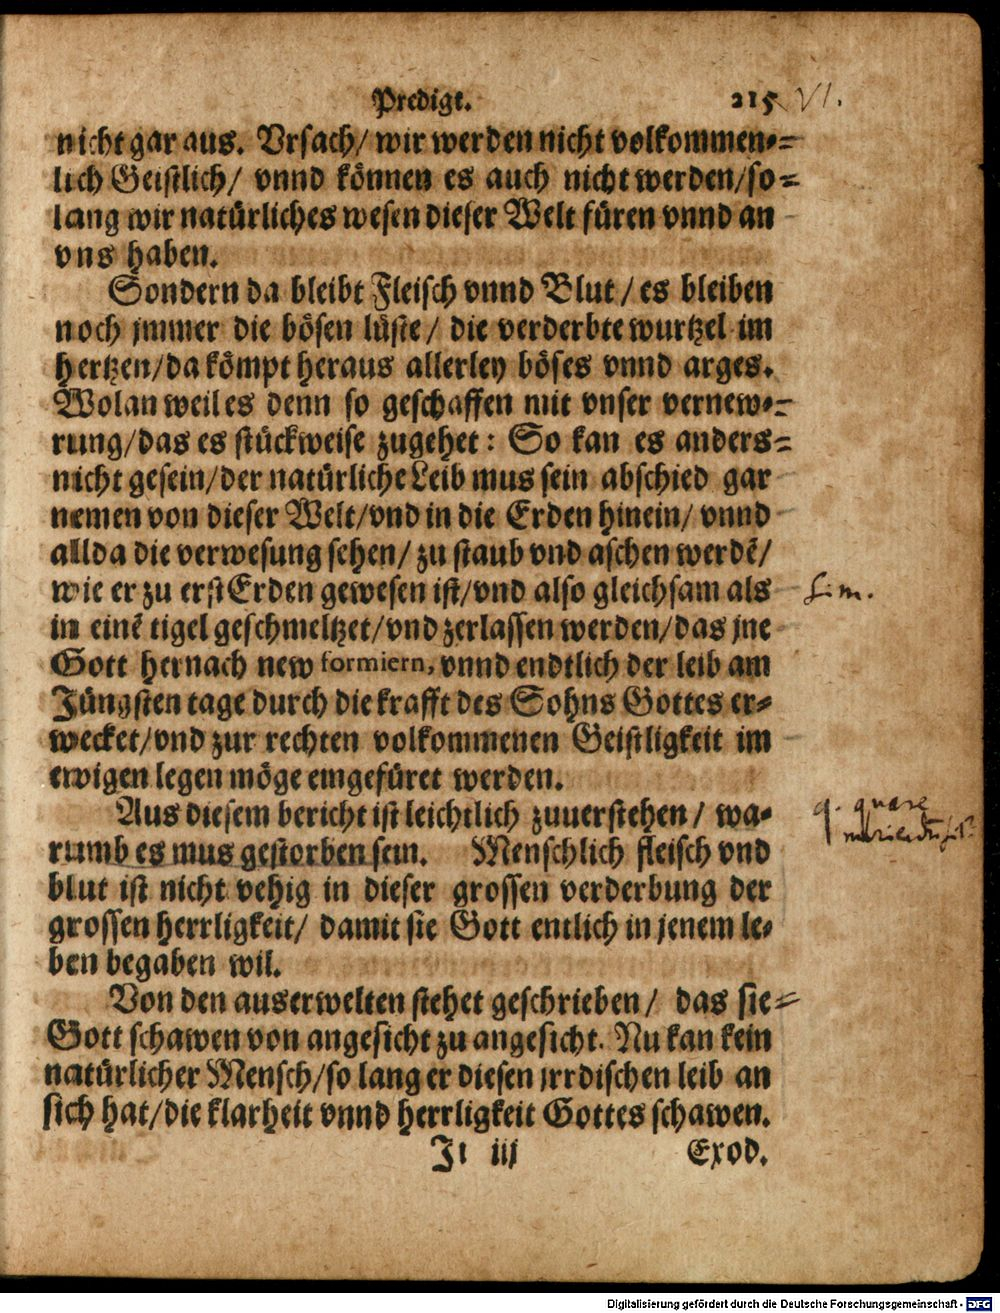 Predigt. 215 VI.
nicht gar aus. Vrsach/ wir werden nicht volkommen=
lich Geistlich/ vnnd können es auch nicht werden/so=
lang wir natürliches wesen dieser Welt füren vnnd an
vns haben.
Sondern da bleibt Fleisch vnnd Blut/ es bleiben
noch jmmer die bösen lüste/ die verderbte wurtzel im
hertzen/da kömpt heraus allerley böses vnnd arges.
Wolan weil es denn so geschaffen mit vnser vernew=
rung/das es stückweise zugehet: So kan es anders=
nicht gesein/der natürliche Leib mus sein abschied gar
nemen von dieser Welt/vnd in die Erden hinein/ vnnd
allda die verwesung sehen/ zu staub vnd aschen werdẽ/
wie er zu erst Erden gewesen ist/vnd also gleichsam als
sim.
in einẽ tigel geschmeltzet/vnd zerlassen werden/das jne
Gott hernach new formiern, vnnd endtlich der leib am
Jüngsten tage durch die krafft des Sohns Gottes er=
wecket/vnd zur rechten volkommenen Geistligkeit im
ewigen legen möge eingefüret werden.
Aus diesem bericht ist leichtlich zuuerstehen/ wa=
q. quare
rumb es mus gestorben sein. Menschlich fleisch vnd
blut ist nicht vehig in dieser grossen verderbung der
grossen herrligkeit/ damit sie Gott entlich in jenem le=
ben begaben wil.
Von den auserwelten stehet geschrieben/ das sie=
Gott schawen von angesicht zu angesicht. Nu kan kein
natürlicher Mensch/so lang er diesen jrrdischen leib an
sich hat/die klarheit vnnd herrligkeit Gottes schawen.
Ji iij Exod.
Digitalisierung gefördert durch die Deutsche Forschungsgemeinschaft - DFG